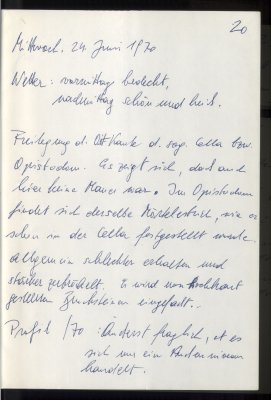 20
Mittwoch, 24. Juni 1970
Wetter: vormittag bedeckt,
nachmittag schön und heiß.
Freilegung d. Ostkante d. sog. Cella bzw.
Opistodom. Es zeigt sich, daß auch
hier keine Mauer war. Im Opistodom
findet sich derselbe Mörtelestrich, wie er
schon in der Cella festgestellt wurde.
allgemein schlechter erhalten und
stärker zerbröckelt. Er wird von hochkant
gestellten Bruchsteinen eingefaßt.
Profil /70 : Äußerst fraglich, ob es
sich um ein
handelt.